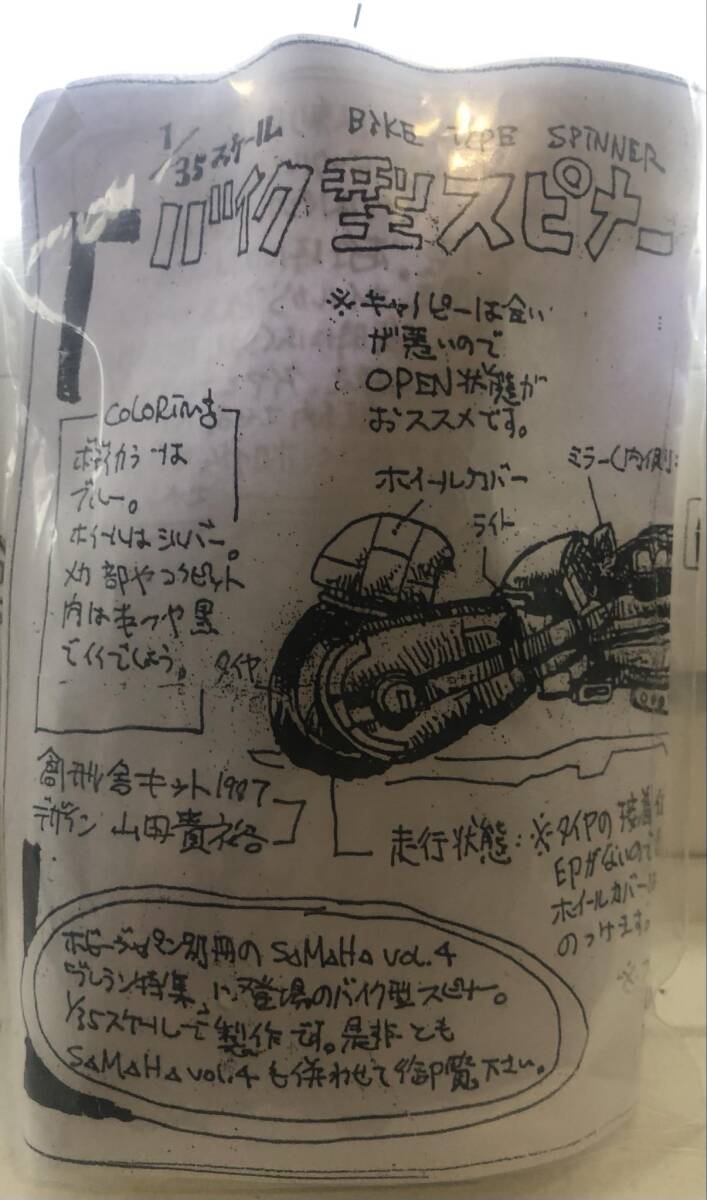 1/35スケール
BIKE TYPE SPINNER
バイク型スピナー
※キャノピーは合い
が悪いので
OPEN状態が
おススメです。
COLORING
ボディカラーは
ブルー。
ホイールはシルバー。
メカ部やコクピット
内はもつや黒
でイイでしょう。
ホイールカバー
ミラー(内側
ライト
タイヤ
創形舎キット1987
デザイン 山田貴裕
走行状態:※タイヤの接着
EPがないので
ホイールカバー
のっけます。
ホビージャパン別冊のSAMAHA VOL.4
"ブレラン特集"に登場のバイク型スピナー。
1/35スケールで製作です。是非とも
SAMAHA VOL.4も併わせて御覧下さい。